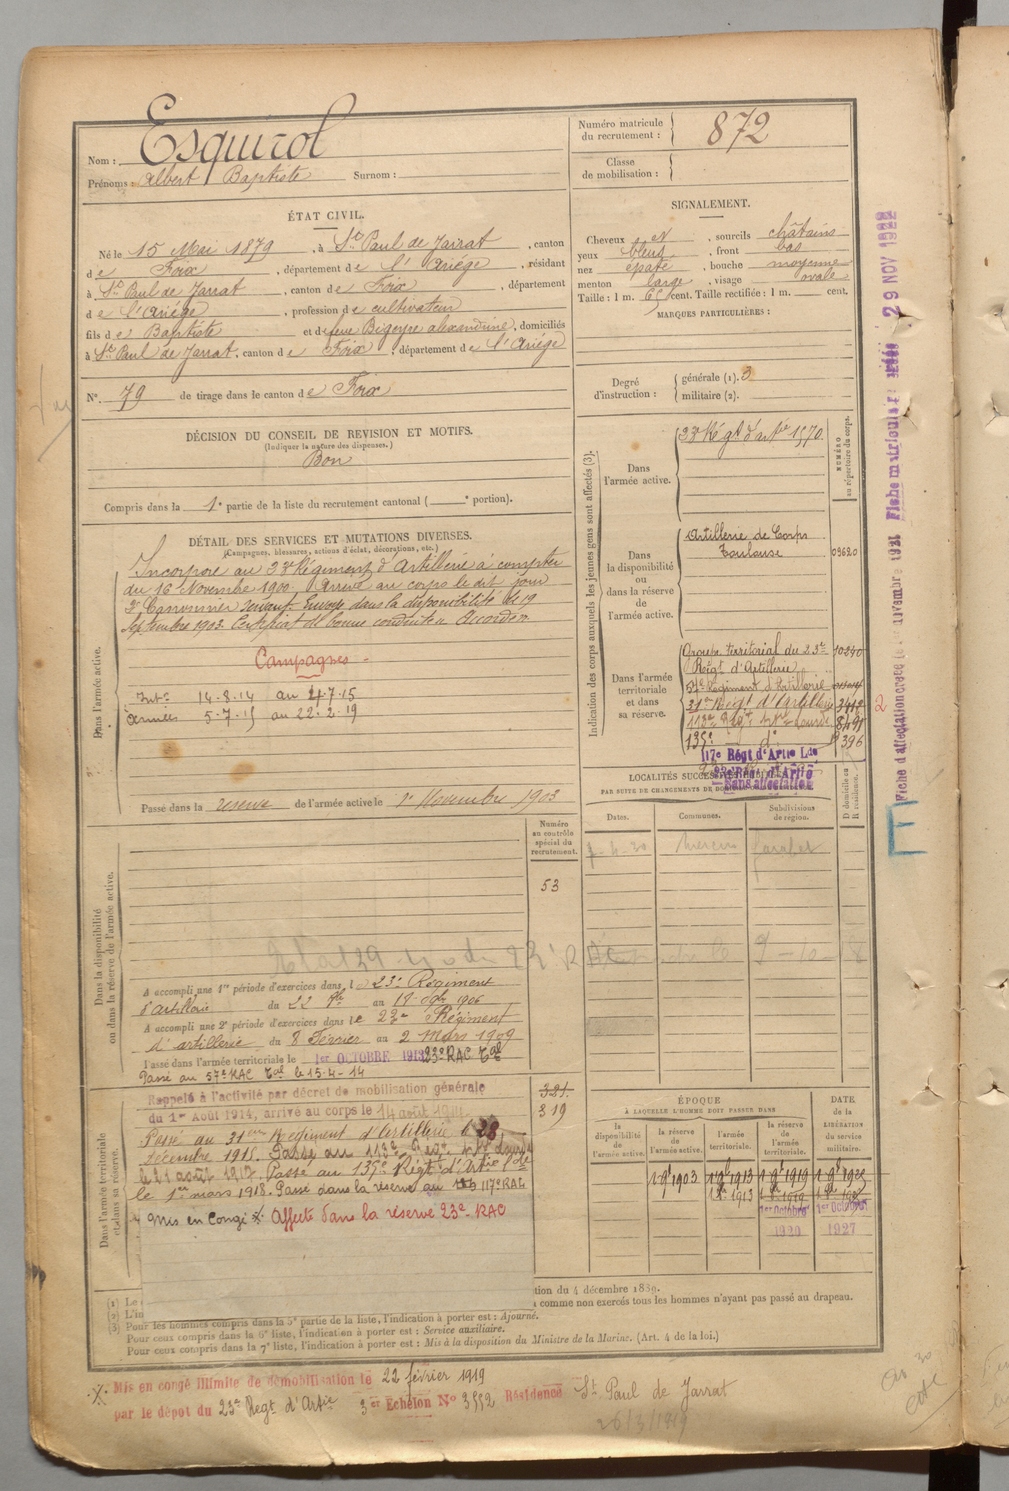 Nom : Esquirol
Prénoms : Albert Baptiste Surnom :
Numéro matricule du recrutement : 872
Classe de mobilisation :
ÉTAT CIVIL.
Né le 15 Mai 1879, à St Paul de Jarrat, canton
de Foix, département de l'Ariége, résidant
à St Paul de Jarrat, canton de Foix, département
de l'Ariége, profession de cultivateur
fils de Baptiste et de feue Bigeyre alexandrine, domiciliés
à St Paul de Jarrat, canton de Foix, département de l'Ariége
N° 79 de tirage dans le canton de Foix
SIGNALEMENT.
Cheveux et, sourcils châtains
yeux bleus, front bas
nez épaté, bouche moyenne
menton large, visage ovale
Taille : 1 m. 65 cent. Taille rectifiée : 1 m. cent.
MARQUES PARTICULIÈRES :
Degré d'instruction : générale (1). 3
militaire (2).
DÉCISION DU CONSEIL DE REVISION ET MOTIFS.
(Indiquer la nature des dispenses.)
Bon
Compris dans la 1e partie de la liste du recrutement cantonal ( e portion).
DÉTAIL DES SERVICES ET MUTATIONS DIVERSES.
(Campagnes, blessures, actions d'éclat, décorations, etc.)
Dans l'armée active.
Incorporé au 23e Régiment d'Artillerie à compter
du 16 Novembre 1900. Arrivé au corps le dit jour
2e Canonnier servant. Envoyé dans la disponibilité le 19
Septembre 1903. Certificat de bonne conduite Accordé
Campagnes -
Intr 14.8.14 au 4.7.15
Armées 5.7.15 au 22.2.19
Passé dans la réserve de l'armée active le 1er Novembre 1903
Indication des corps auxquels les jeunes gens sont affectés (3).
NUMÉRO au répertoire du corps.
Dans l'armée active.
23e Régt d'artie 1570.
Dans la disponibilité ou dans la réserve de l'armée active.
Artillerie de Corps
Toulouse 03620
Dans l'armée territoriale et dans sa réserve.
Groupe territorial du 23e 10240
Régt d'Artillerie
57e Régiment d'Artillerie
31e Régt d'Artillerie
113e Régt Lourde
135e do 396
117e Régt d'Artie Lde
23e Régt d'Artie
Sans affectation
LOCALITÉS SUCCESSIVES
PAR SUITE DE CHANGEMENTS DE
Dates. Communes. Subdivisions de région. D domicile ou R résidence.
Dans la disponibilité ou dans la réserve de l'armée active.
Numéro au contrôle spécial du recrutement.
53
A accompli une 1re période d'exercices dans le 23e Régiment
d'artillerie du 22 au 18 1906
A accompli une 2e période d'exercices dans le 23e Régiment
d'artillerie du 8 Février au 2 Mars 1909
Passé dans l'armée territoriale le 1er OCTOBRE 1913 23e RAC Tal
Passé au 57e RAC Tal le 15-4-14
Dans l'armée territoriale et dans sa réserve.
321.
319
Rappelé à l'activité par décret de mobilisation générale
du 1er Août 1914, arrivé au corps le 14 août 1914
Passé au 31eme Régiment d'Artillerie le 28
décembre 1915. Passé au 113e
le 1 août 1917. Passé au 135e Régt d'Artie Lde
le 1er mars 1918. Passé dans la réserve au 117e RAL
Mis en Congé X. Affecté dans la réserve 23e RAC
ÉPOQUE
À LAQUELLE L'HOMME DOIT PASSER DANS
la disponibilité de l'armée active. la réserve de l'armée active. l'armée territoriale. la réserve de l'armée territoriale. DATE de la LIBÉRATION du service militaire.
1 9bre 1903 1 9bre 1913 1 9bre 1919
1er Octobre 1er Octobre
1920 1927
(1) Le
(2) L'in
tion du 4 décembre 1889.
comme non exercés tous les hommes n'ayant pas passé au drapeau.
(3) Pour les hommes compris dans la 5e partie de la liste, l'indication à porter est : Ajourné.
Pour ceux compris dans la 6e liste, l'indication à porter est : Service auxiliaire.
Pour ceux compris dans la 7e liste, l'indication à porter est : Mis à la disposition du Ministre de la Marine. (Art. 4 de la loi.)
X. Mis en congé illimité de démobilisation le 22 février 1919
par le dépôt du 23e Régt d'Artie 3er Echelon N° 3552 Résidence St Paul de Jarrat
26/3/1919
Fiche d'affectation créée le novembre 1921 Fiche matriculaire 29 NOV 1922
2